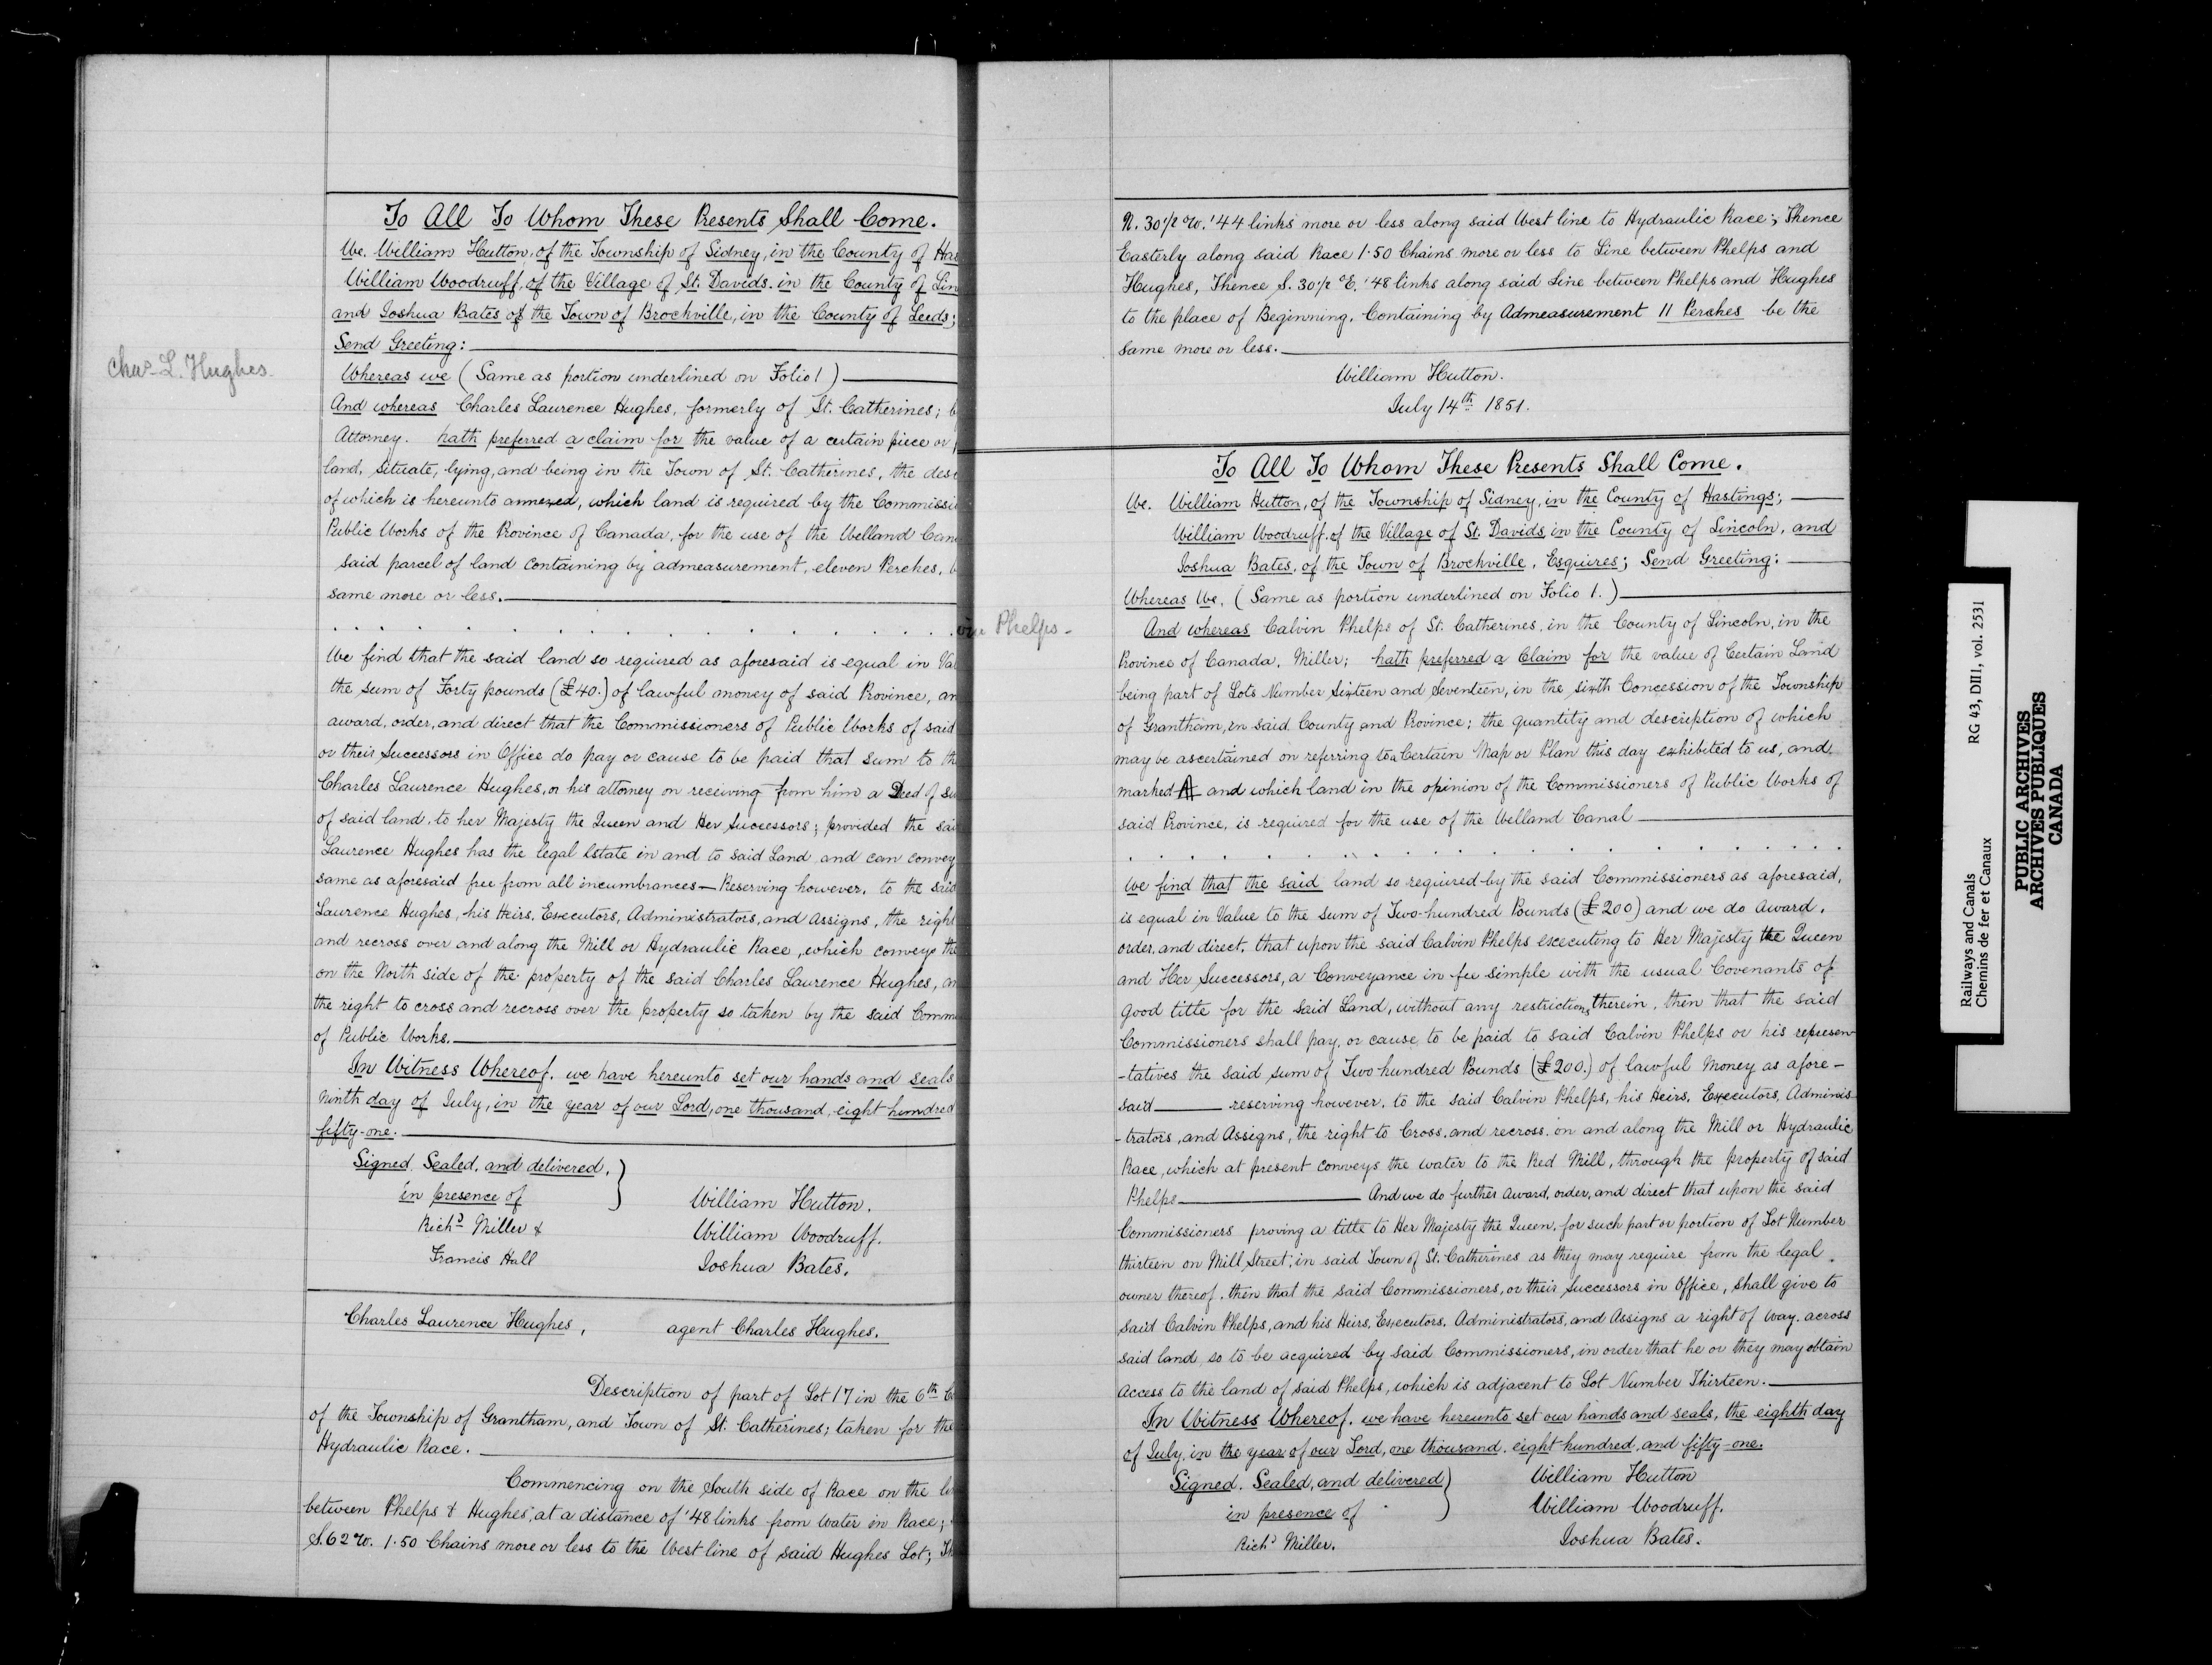 Chas. L. Hughes.
To All To Whom These Presents Shall Come.
We. William Hutton, of the Township of Sidney, in the County of Has
William Woodruff, of the Village of St. Davids. in the County of Lin
and Joshua Bates of the Town of Brockville, in the County of Leeds;
Send Greeting:
Whereas we (Same as portion underlined on Folio 1)
And whereas Charles Laurence Hughes, formerly of St. Catherines; b
Attorney. hath preferred a claim for the value of a certain piece or p
land, situate, lying, and being in the Town of St. Catherines, the des
of which is hereunto annexed, which land is required by the Commissi
Public Works of the Province of Canada, for the use of the Welland Can
said parcel of land containing by admeasurement, eleven Perches, b
same more or less.
We find that the said land so required as aforesaid is equal in Val
the sum of Forty pounds (£40.) of lawful money of said Province, an
award, order, and direct that the Commissioners of Public Works of said
or their Successors in Office do pay or cause to be paid that sum to th
Charles Laurence Hughes, or his attorney on receiving from him a Deed of su
of said land, to her Majesty the Queen and Her Successors; provided the sai
Laurence Hughes has the legal Estate in and to said Land and can convey
same as aforesaid free from all incumbrances — Reserving however, to the said
Laurence Hughes, his Heirs, Executors, Administrators, and Assigns, the right
and recross over and along the Mill or Hydraulic Race, which conveys the
on the North side of the property of the said Charles Laurence Hughes, an
the right to cross and recross over the property so taken by the said Comm
of Public Works.
In Witness Whereof. we have hereunto set our hands and seals
ninth day of July, in the year of our Lord, one thousand, eight hundred
fifty-one.
Signed. Sealed. and delivered.
in presence of
William Hutton.
Richd Miller &
William Woodruff.
Francis Hall
Joshua Bates.
Charles Laurence Hughes, agent Charles Hughes.
Description of part of Lot 17 in the 6th Co
of the Township of Grantham, and Town of St. Catherines; taken for the
Hydraulic Race.
Commencing on the South side of Race on the lin
between Phelps & Hughes, at a distance of '48 links from water in Race;
S. 62 W. 1.50 Chains more or less to the West line of said Hughes Lot; Th
N. 30 1/2 W. '44 links more or less along said West line to Hydraulic Race; Thence
Easterly along said Race 1.50 Chains more or less to Line between Phelps and
Hughes, Thence S. 30 1/2 E. '48 links along said Line between Phelps and Hughes
to the place of Beginning. Containing by Admeasurement 11 Perches be the
same more or less.
William Hutton.
July 14th 1851.
vin Phelps -
To All To Whom These Presents Shall Come.
We. William Hutton, of the Township of Sidney, in the County of Hastings;
William Woodruff. of the Village of St. Davids, in the County of Lincoln, and
Joshua Bates, of the Town of Brockville, Esquires; Send Greeting:
Whereas We, (Same as portion underlined on Folio 1.)
And whereas Calvin Phelps of St. Catherines, in the County of Lincoln, in the
Province of Canada, Miller; hath preferred a Claim for the value of Certain Land
being part of Lots Number Sixteen and Seventeen, in the sixth Concession of the Township
of Grantham, in said County and Province; the quantity and description of which
may be ascertained on referring to a Certain Map or Plan this day exhibited to us, and
marked A and which land in the opinion of the Commissioners of Public Works of
said Province, is required for the use of the Welland Canal
We find that the said land so required by the said Commissioners as aforesaid,
is equal in Value to the sum of Two hundred Pounds (£200) and we do award,
order, and direct, that upon the said Calvin Phelps excecuting to Her Majesty the Queen
and Her Successors, a Conveyance in fee simple with the usual Covenants of
good title for the said Land, without any restrictions therein, then that the said
Commissioners shall pay, or cause to be paid to said Calvin Phelps or his represen-
-tatives the said sum of Two hundred Pounds (£200.) of lawful Money as afore-
said — reserving however, to the said Calvin Phelps, his Heirs, Executors, Adminis-
-trators, and Assigns, the right to Cross, and recross. on and along the Mill or Hydraulic
Race, which at present conveys the water to the Red Mill, through the property of said
Phelps — And we do further award, order, and direct that upon the said
Commissioners proving a title to Her Majesty the Queen, for such part or portion of Lot Number
thirteen on Mill Street, in said Town of St. Catherines as they may require from the legal
owner thereof, then that the said Commissioners, or their Successors in Office, shall give to
said Calvin Phelps, and his Heirs, Executors, Administrators, and Assigns a right of way, across
said land, so to be acquired by said Commissioners, in order that he or they may obtain
access to the land of said Phelps, which is adjacent to Lot Number Thirteen.
In Witness Whereof. we have hereunto set our hands and seals, the eighth day
of July, in the year of our Lord, one thousand. eight hundred, and fifty-one.
Signed. Sealed, and delivered
William Hutton
in presence of
William Woodruff.
Richd Miller.
Joshua Bates.
Railways and Canals
Chemins de fer et Canaux
RG 43, DIII, vol. 2531
PUBLIC ARCHIVES
ARCHIVES PUBLIQUES
CANADA